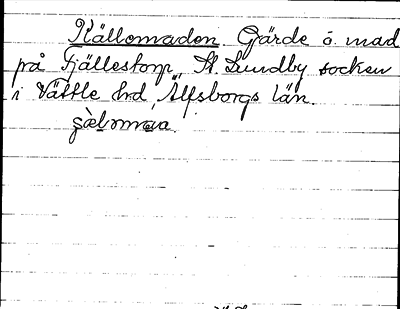 Källomaden. Gärde o. mad
på Fjällestorp, St. Lundby socken
i Vättle hrd, Älfsborgs län.